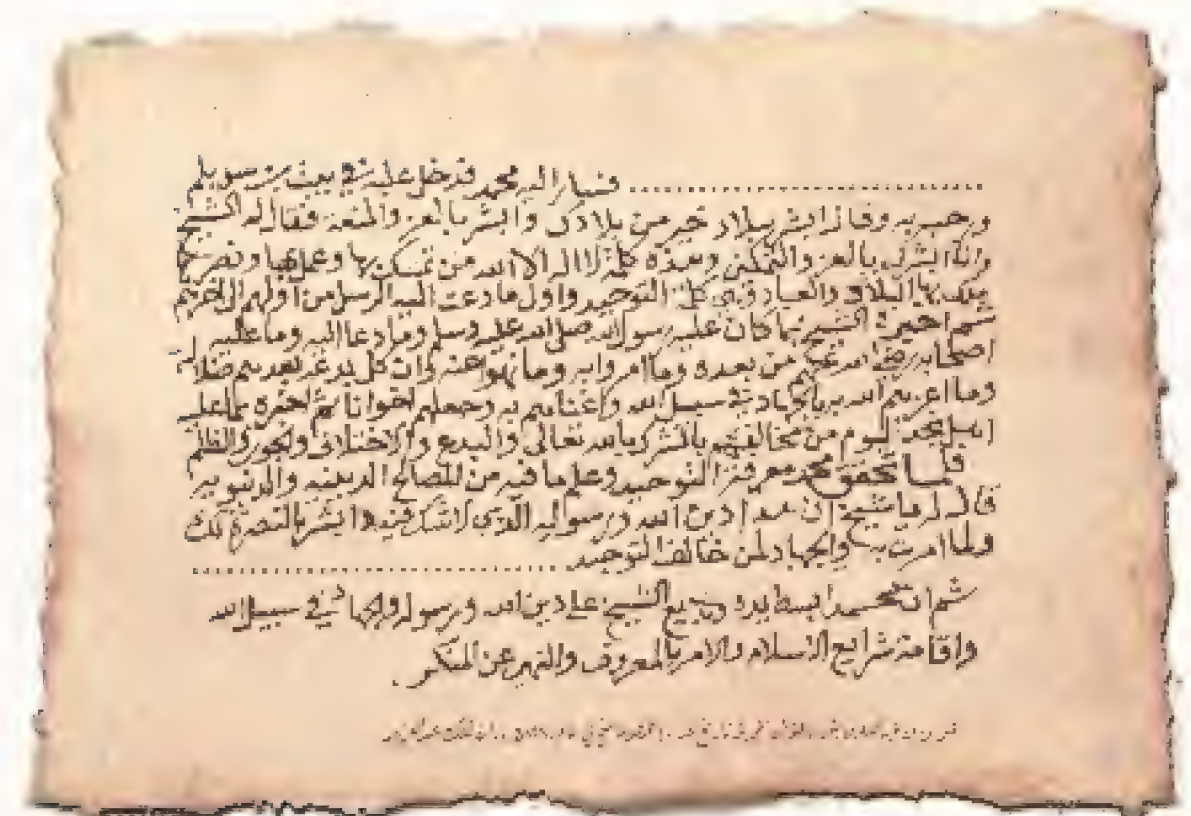 ........ فسار اليه محمد فدخل عليه في بيت بن سويلم
ورحب به وقال ابشر ببلاد خير من بلادك وابشر بالعز والمنعة فقال له الشيخ
وانا ابشرك بالعز والتمكين وهذه كلمة لا اله الا الله من تمسك بها وعمل بها ونصرها
ملك بها البلاد والعباد وهي كلمة التوحيد واول ما دعت اليه الرسل من اولهم الى اخرهم
ثم اخبره الشيخ بما كان عليه رسول الله صلى الله عليه وسلم وما دعا اليه وما عليه
اصحابه رضي الله عنهم من بعده وما امروا به وما نهوا عنه وان كل بدعة بعدهم ضلالة
وما اعزهم الله به بالجهاد في سبيل الله واغناهم به وجعلهم اخوانا ثم اخبره بما عليه
اهل نجد اليوم من مخالفتهم بالشرك بالله تعالى والبدع والاختلاف والجور والظلم
فلما تحقق محمد معرفة التوحيد وعلم ما فيه من المصالح الدينية والدنيوية
قال له يا شيخ ان هذا دين الله ورسوله الذي لا شك فيه وابشر بالنصرة لك
ولما امرت به والجهاد لمن خالف التوحيد ........
ثم ان محمدا بسط يده وبايع الشيخ على دين الله ورسوله والجهاد في سبيل الله
واقامة شرايع الاسلام والامر بالمعروف والنهي عن المنكر .